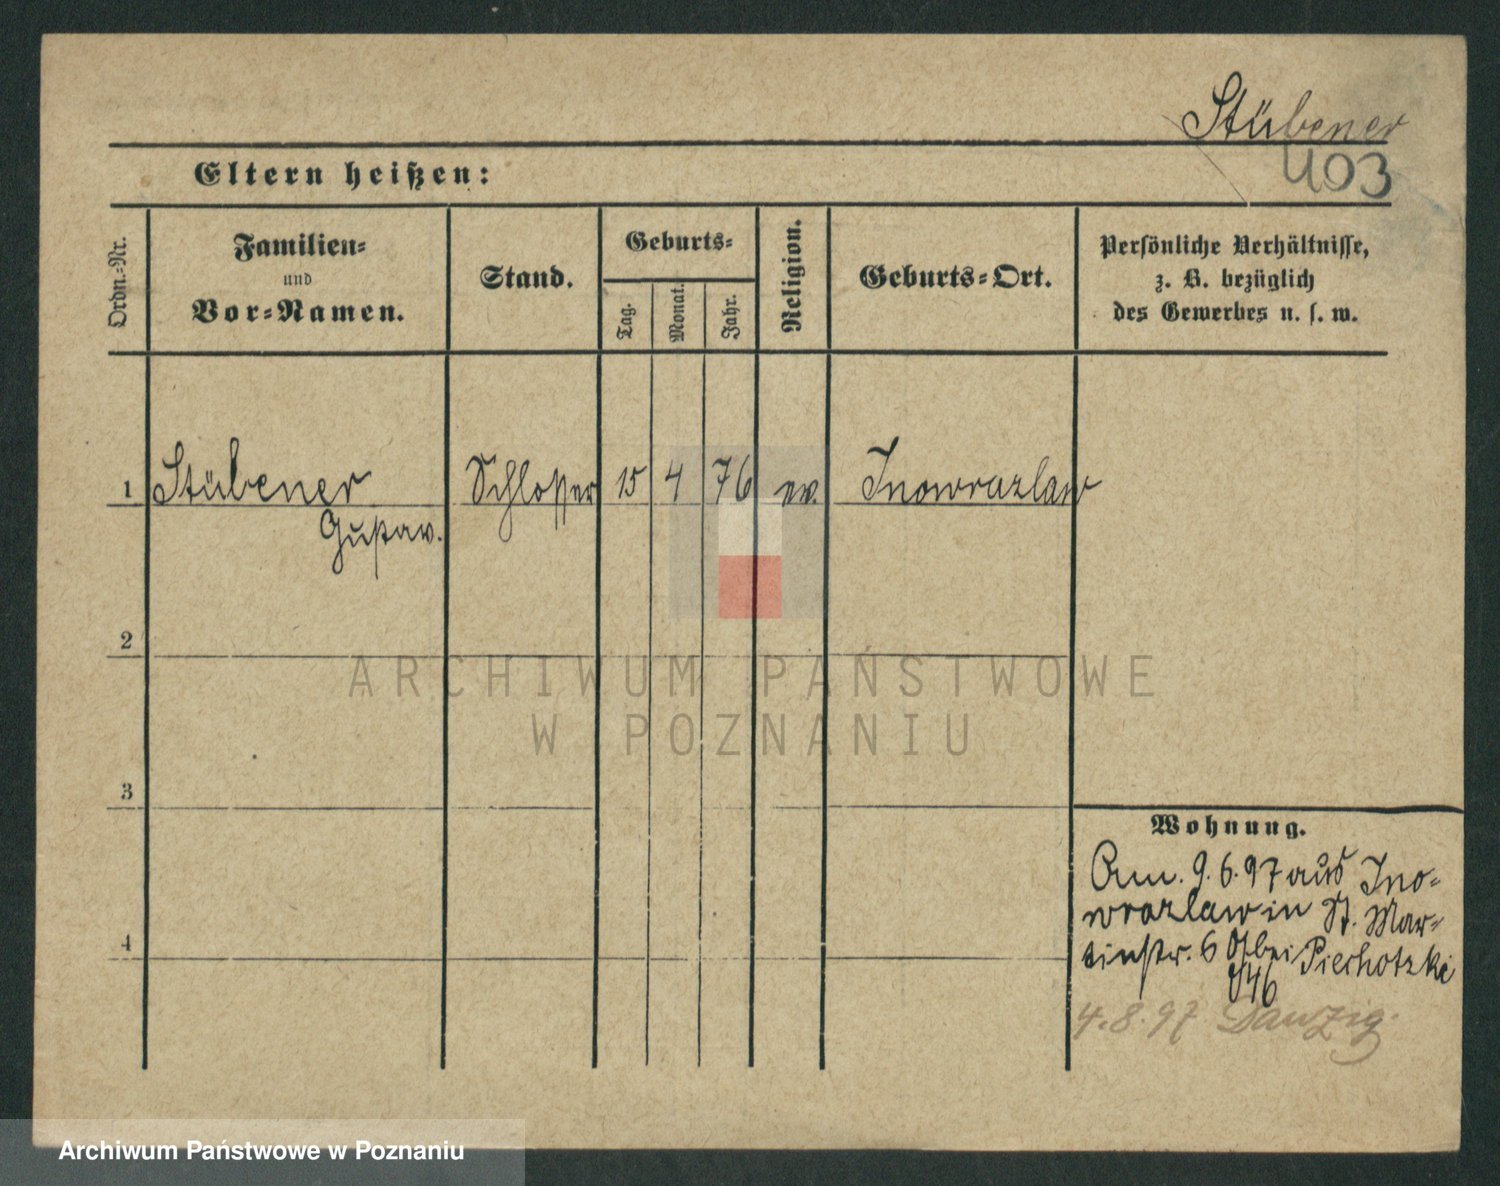 Stübener
403
Eltern heißen:
Ordn.-Nr.
Familien-
und
Vor-Namen.
Stand.
Geburts-
Tag.
Monat.
Jahr.
Religion.
Geburts-Ort.
Persönliche Verhältnisse,
z. B. bezüglich
des Gewerbes u. s. w.
1 Stübener Schlosser 15 4 76 ev. Inowrazlaw
Gustav.
2
3
4
Wohnung.
Am. 9.6.97 aus Ino-
wrazlaw in St. Mar-
tinstr. 6 bei Piechotzki
4.8.97 Danzig.
ARCHIWUM PAŃSTWOWE
W POZNANIU
Archiwum Państwowe w Poznaniu